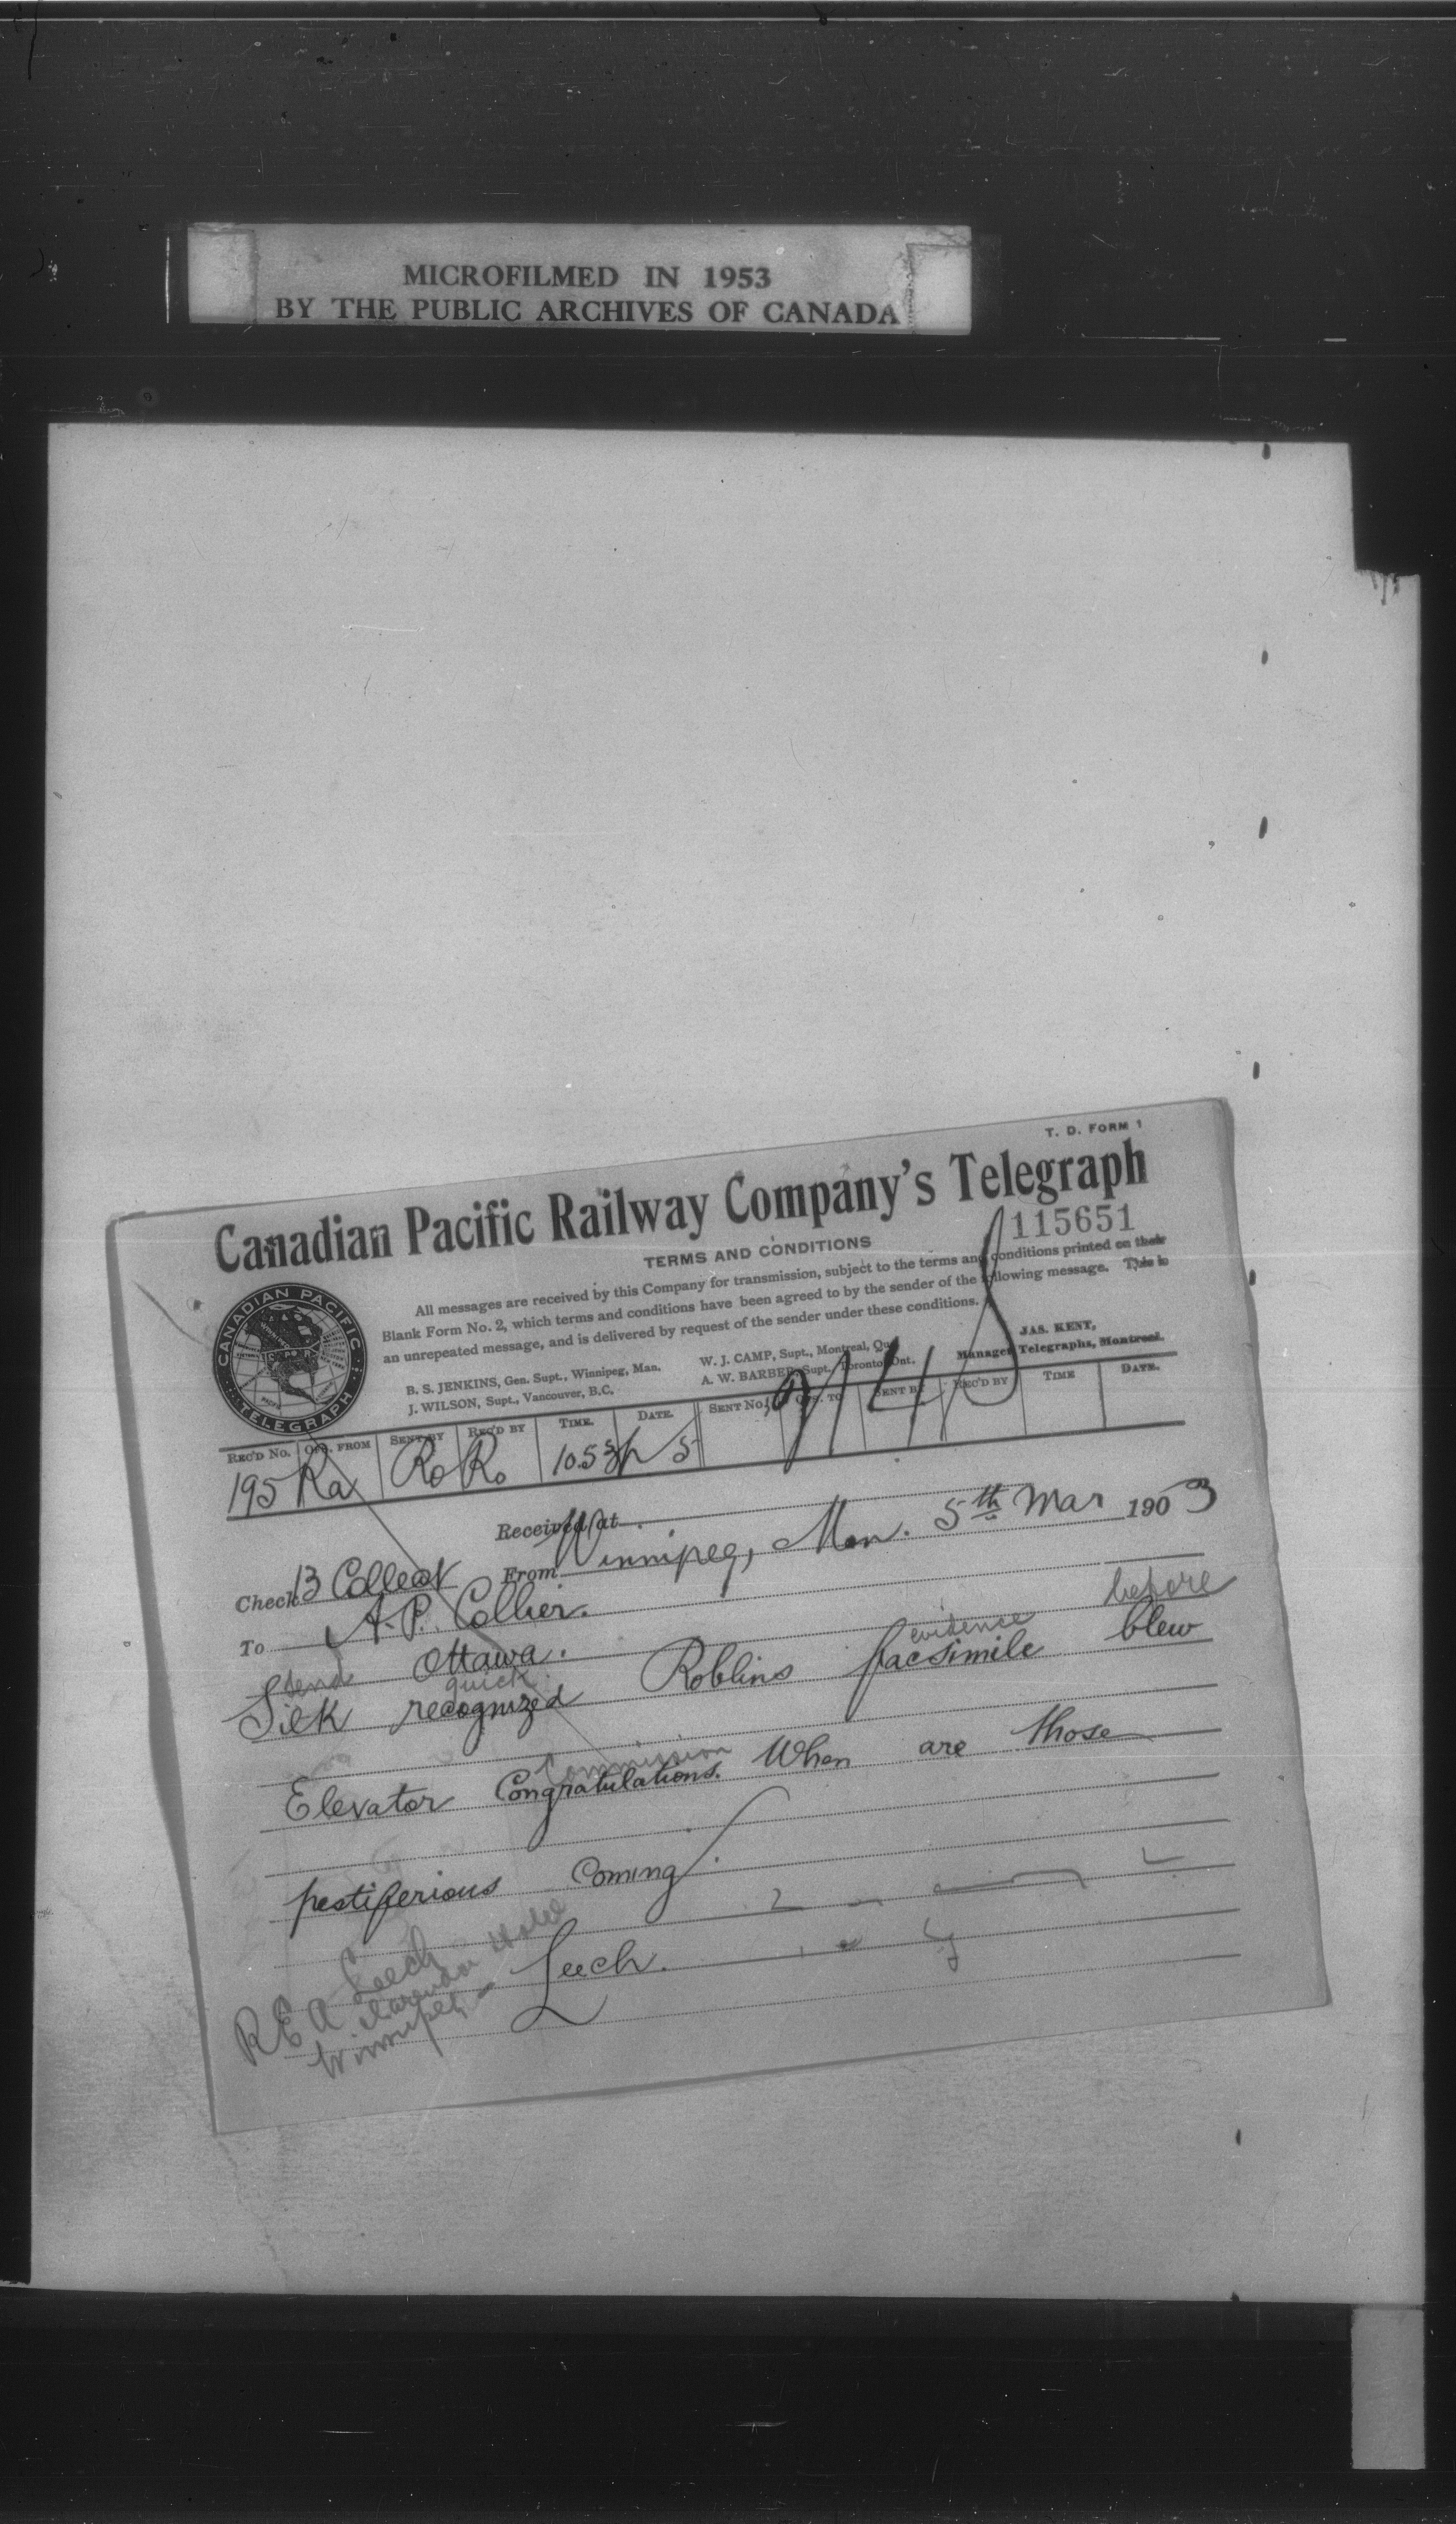 MICROFILMED IN 1953
BY THE PUBLIC ARCHIVES OF CANADA
T. D. FORM 1
Canadian Pacific Railway Company's Telegraph
115651
TERMS AND CONDITIONS
All messages are received by this Company for transmission, subject to the terms and conditions printed on their
Blank Form No. 2, which terms and conditions have been agreed to by the sender of the following message. This is
an unrepeated message, and is delivered by request of the sender under these conditions.
CANADIAN PACIFIC TELEGRAPH
B. S. JENKINS, Gen. Supt., Winnipeg, Man.
J. WILSON, Supt., Vancouver, B.C.
W. J. CAMP, Supt., Montreal, Que.
A. W. BARBER, Supt., Toronto, Ont.
JAS. KENT,
Manager Telegraphs, Montreal.
REC'D No. OFF. FROM SENT BY REC'D BY TIME. DATE. SENT No. OFF. TO SENT BY REC'D BY TIME DATE.
195 Ra Ro Ro 10.53 5
Received at
Check 13 Collect From Winnipeg, Man. 5th Mar 1903
To A. P. Collier.
Ottawa.
send quick evidence before
Silk recognized Roblins facsimile blew
Commission
Elevator Congratulations. When are those
pestiferious coming
Leech.
R E A Leech
Clarendon Hotel
Winnipeg